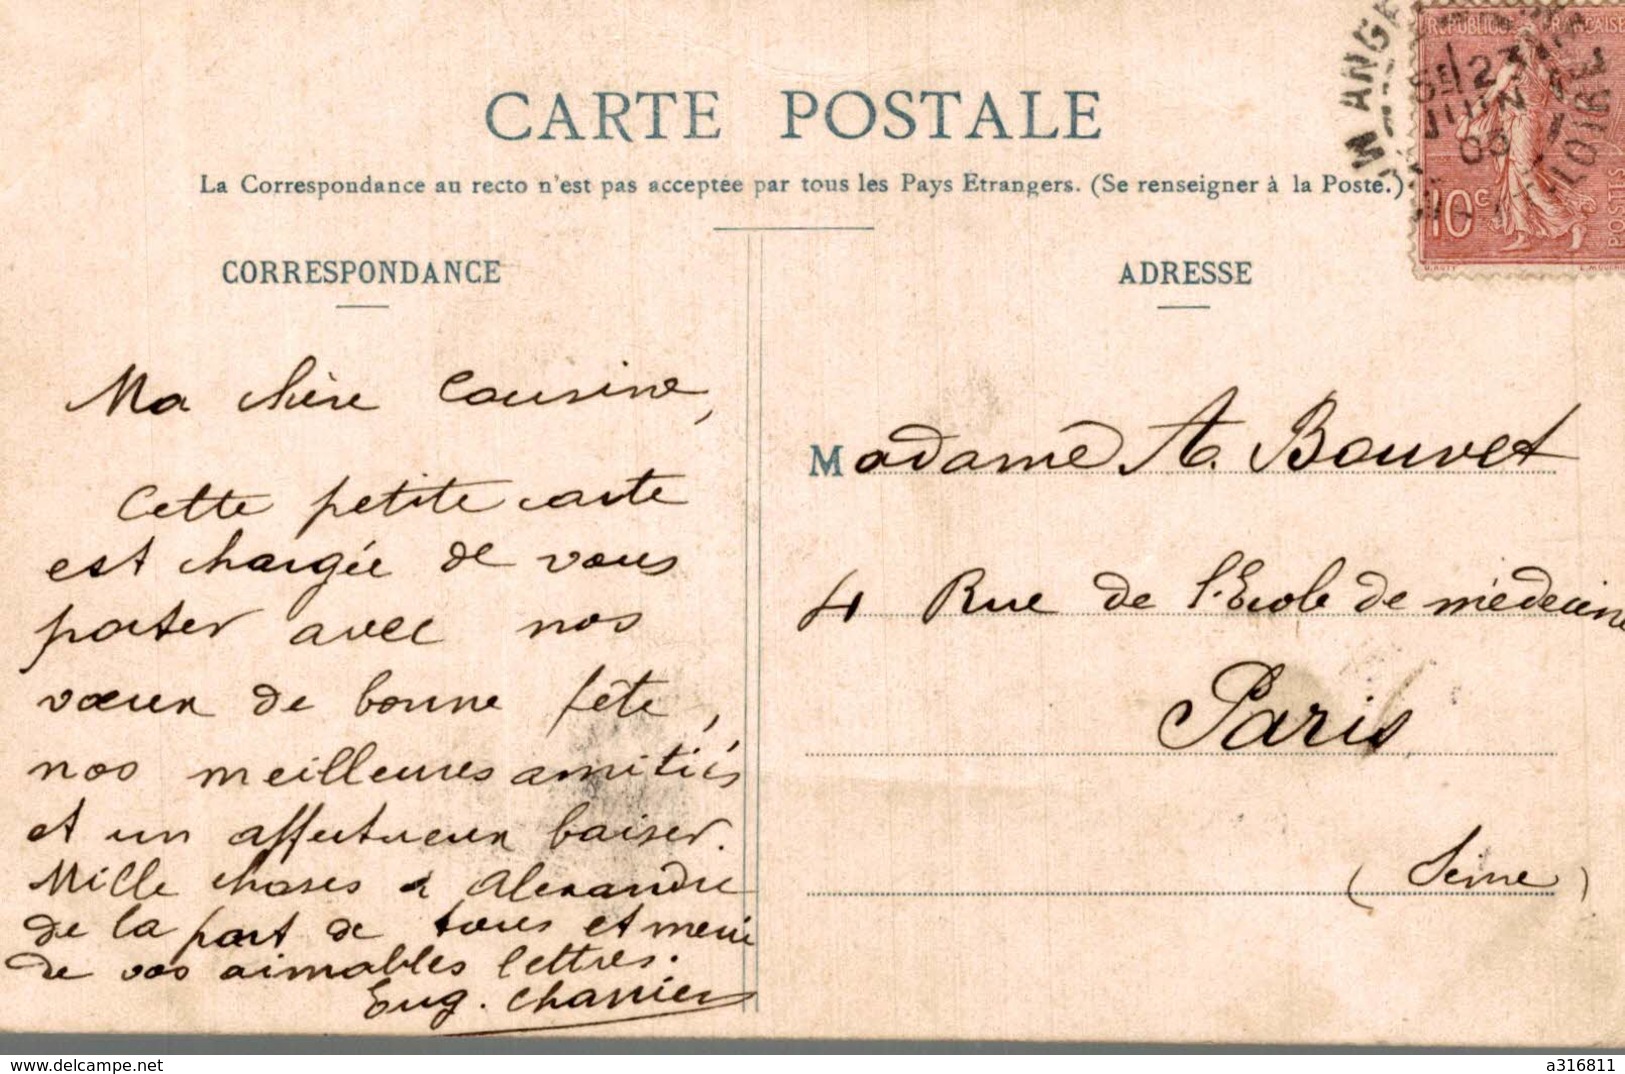 CARTE POSTALE
La Correspondance au recto n'est pas acceptée par tous les Pays Etrangers. (Se renseigner à la Poste.)
CORRESPONDANCE
Ma chère Cousine,
Cette petite carte
est chargée de vous
porter avec nos
vœux de bonne fête,
nos meilleures amitiés
et un affectueux baiser.
Mille choses à Alexandre
de la part de tous et merci
de vos aimables lettres.
Eug. Charrier
ADRESSE
Madame A. Bouvet
4 Rue de l'Ecole de médecine
Paris
(Seine)
REPUBLIQUE FRANÇAISE
10c
POSTES
JUIN
LOIRE
www.delcampe.net
a316811